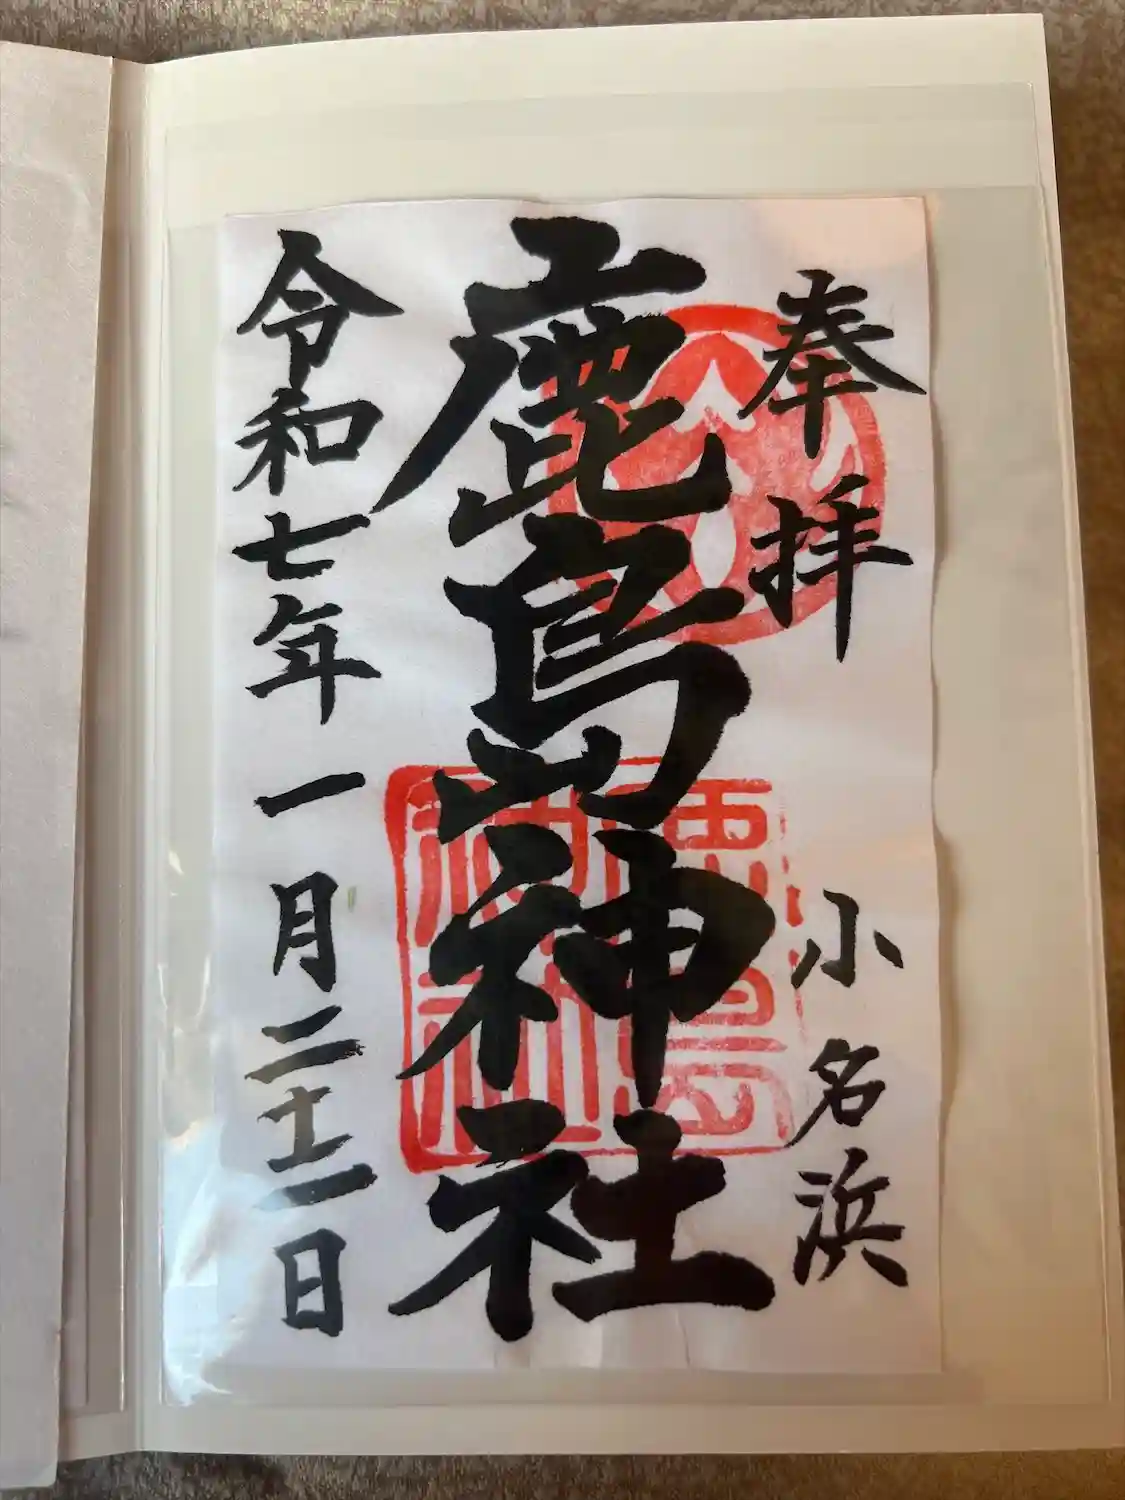 奉拝 小名浜
鹿島神社
令和七年一月二十二日